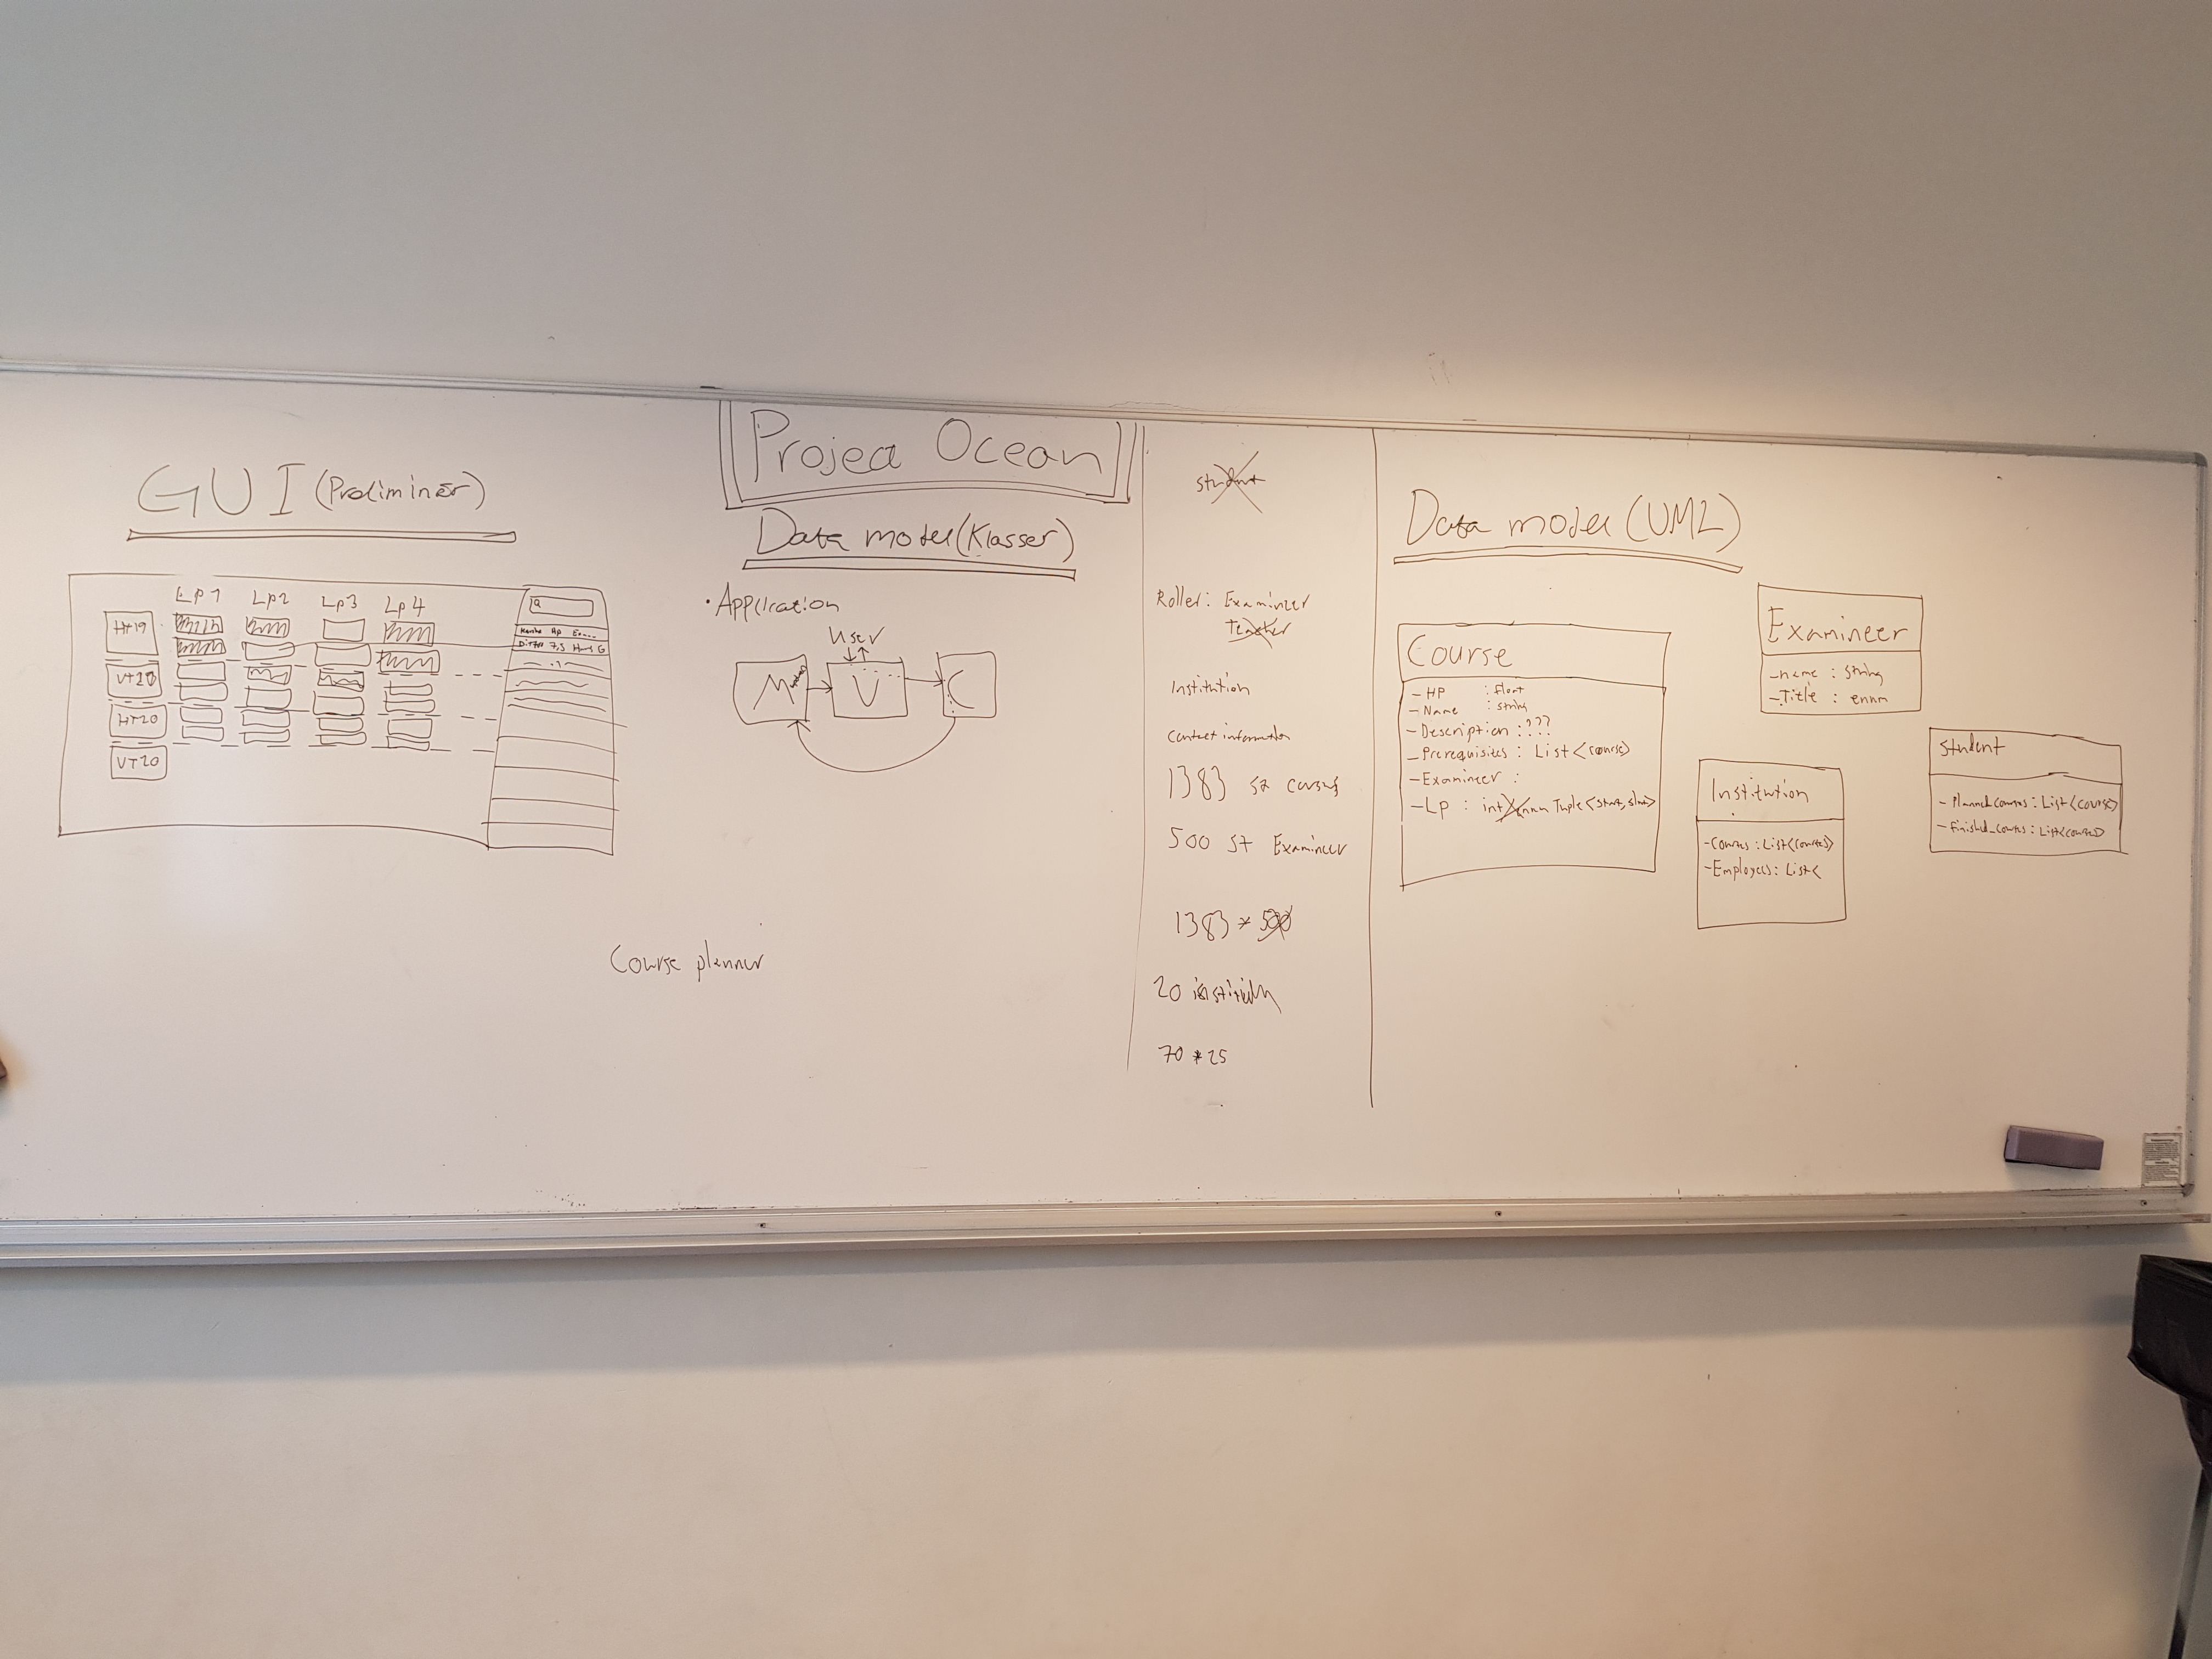 Project Ocean
GUI (Preliminär)
Lp1 Lp2 Lp3 Lp4
HT19
VT20
HT20
VT20
Data model (Klasser)
• Application
User
M V C
Course planner
student
Roller: Examineer
Teacher
Institution
Contact information
1383 st courses
500 st Examineer
1383 * 500
20
70 * 25
Data model (UML)
Course
- HP : float
- Name : string
- Description : ???
- Prerequisites : List <course>
- Examineer :
- Lp : int Tuple <start, slut>
Examineer
- name : string
- Title : enum
Institution
- Courses : List <courses>
- Employees : List <
Student
- Planned_courses : List <course>
- Finished_courses : List <courses>